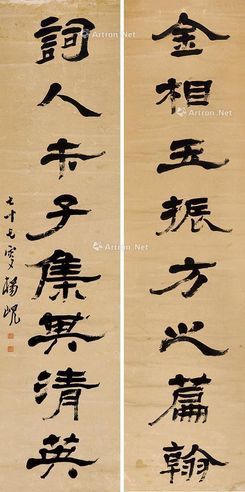 金相玉振方之篇翰
詞人才子集其清英
七十七叟楊峴
Artron.Net
Artron.Net
Artron.Net